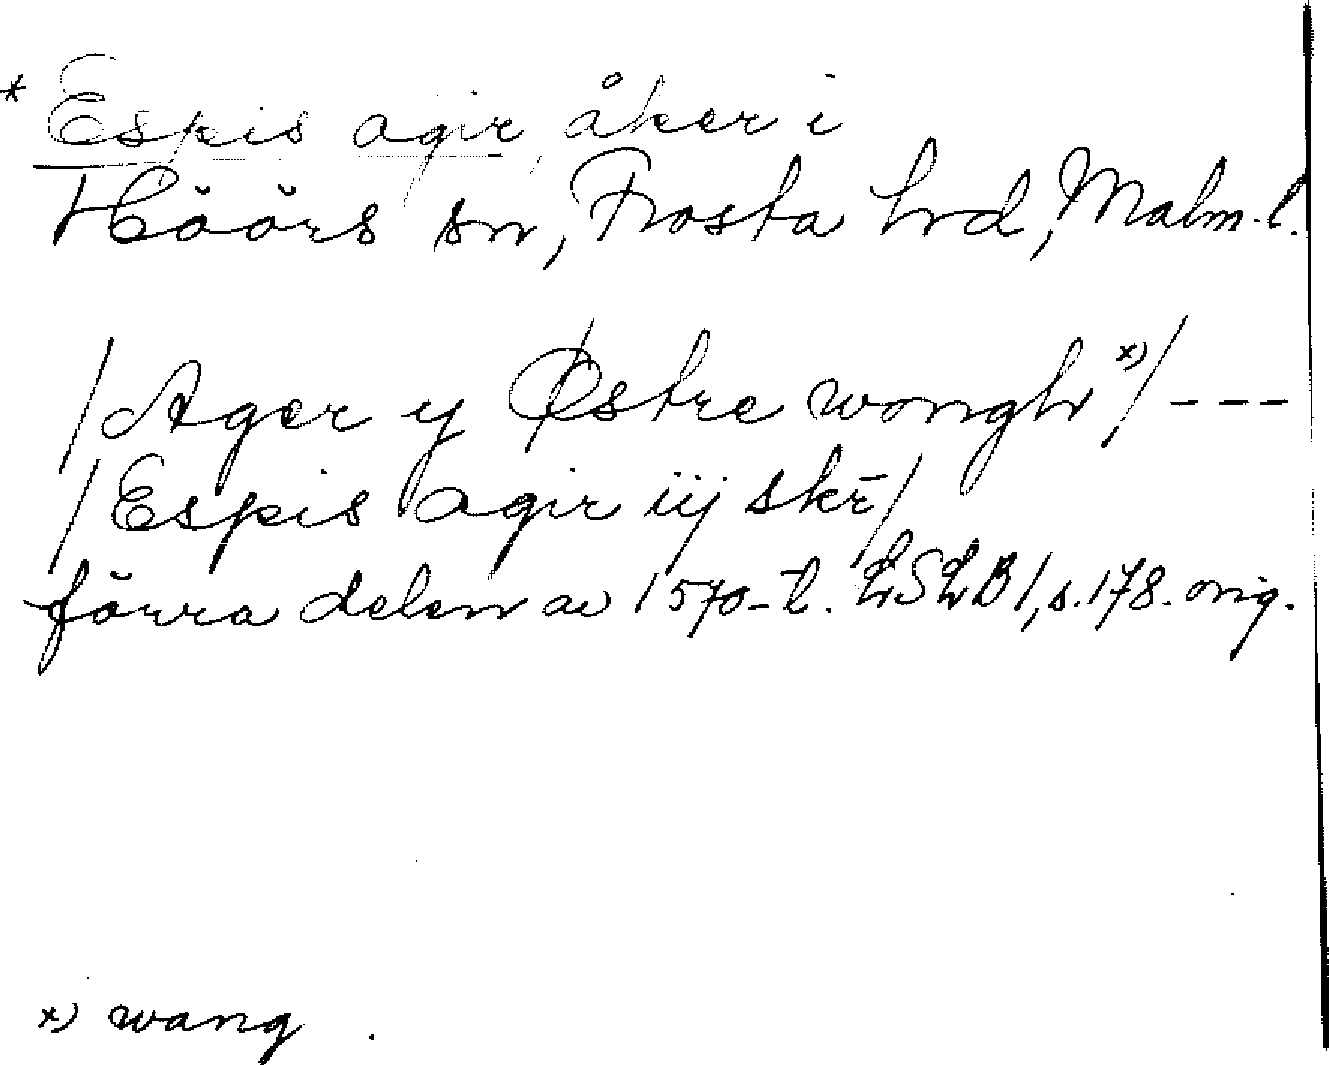 * Espis agir, åker i
Höörs sn, Frosta hrd, Malm.l.
/Ager y Østre wongh x)/ ---
/Espis agir iij skr̄/
förra delen av 1570-t. LSLB 1, s.178. orig.
x) wang.